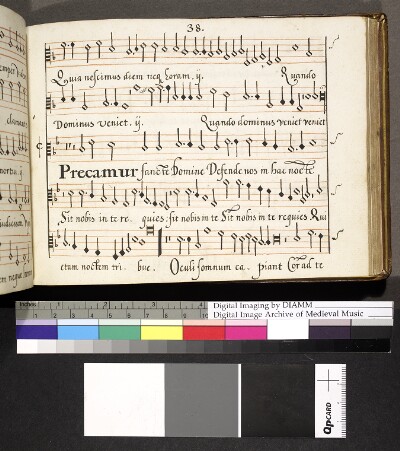 38.
Quia nescimus diem neq horam. ij. Quando
Dominus veniet. ij. Quando dominus veniet veniet
Precamur sancte Domine Defende nos in hac nocte
Sit nobis in te re quies: sit nobis in te Sit nobis in te requies Qui
etam noctem tri bue. Oculi somnum ca piant Cor ad te
inches
1 2 3 4
Digital Imaging by DIAMM
Digital Image Archive of Medieval Music
QPCARD